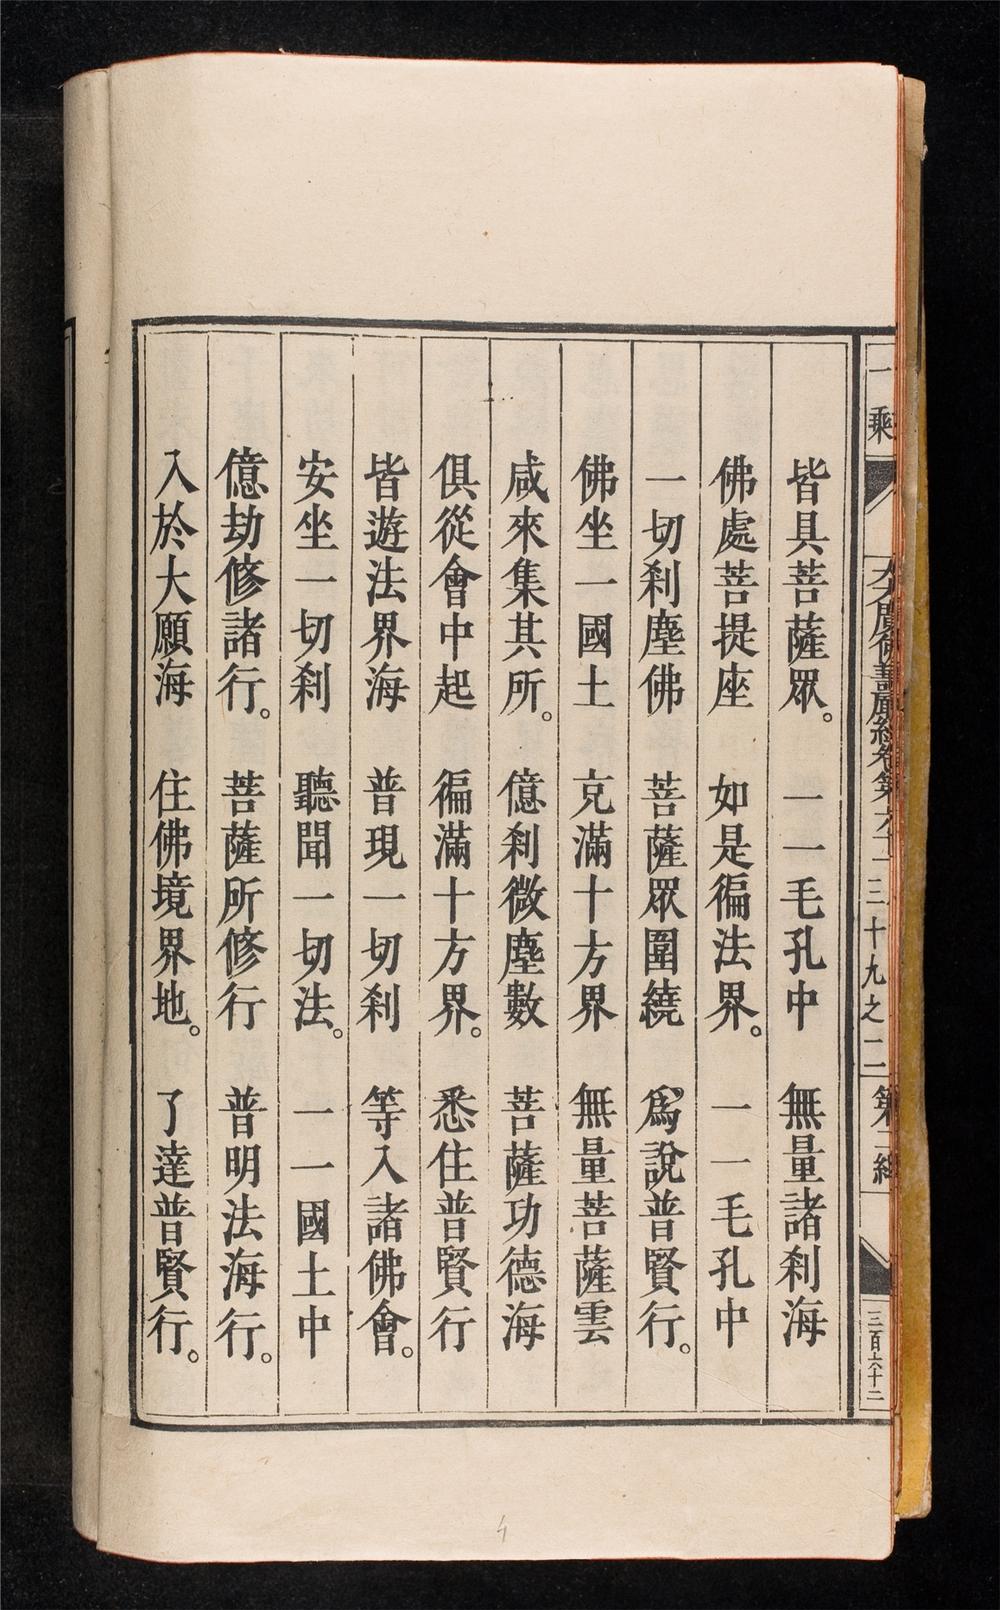 皆具菩薩眾。　一一毛孔中　無量諸剎海
佛處菩提座　如是徧法界。　一一毛孔中
一切剎塵佛　菩薩眾圍繞　爲說普賢行。
佛坐一國土　充滿十方界　無量菩薩雲
咸來集其所。　億剎微塵數　菩薩功德海
俱從會中起　徧滿十方界。　悉住普賢行
皆遊法界海　普現一切剎　等入諸佛會。
安坐一切剎　聽聞一切法。　一一國土中
億劫修諸行。　菩薩所修行　普明法海行。
入於大願海　住佛境界地。　了達普賢行。
三百六十二